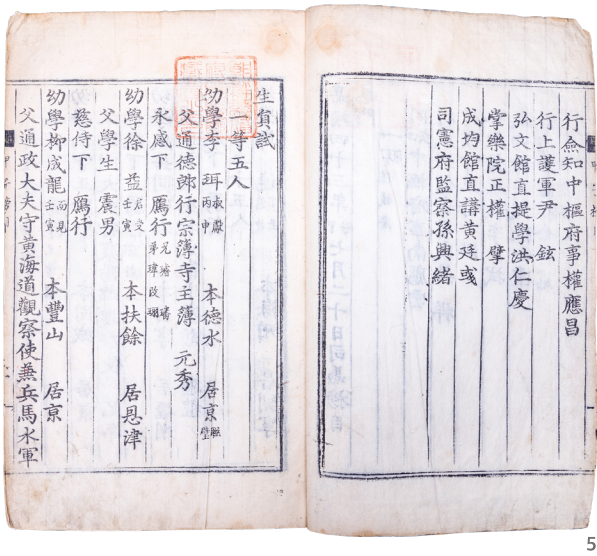 行僉知中樞府事權應昌
行上護軍尹 鉉
弘文館直提學洪仁慶
掌樂院正權 擘
成均館直講黃廷彧
司憲府監察孫興緒
生員試
一等五人
幼學李 珥 叔獻 丙申 本德水 居京
父通德郎行宗簿寺主簿 元秀
永感下 鴈行 兄璿 璠 弟瑋改瑀
幼學徐 益 君受 壬寅 本扶餘 居恩津
父學生大震男
慈侍下 鴈行
幼學柳成龍 而見 壬寅 本豐山 居京
父通政大夫守黃海道觀察使兼兵馬水軍
5